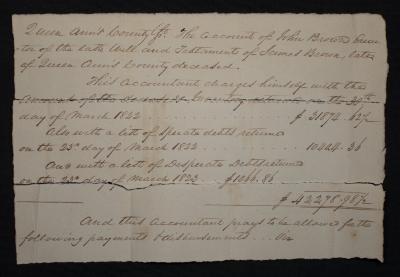 Queen Ann's County Sct. The Account of John Brown Execu
tor of the last Will and Testament of James Brown, late
of Queen Ann's County deceased.
This Accountant charges himself with the
amount of the on the
day of March 1822 $ 31872.62½
Also with a list of Sperate debts returned
on the 23d day of March 1822 10424.36
And with a list of Desperate Debts returned
on the 23d day of March 1822 $1066.86
$ 42296.98½
And this Accountant prays to be allowed for the
following payments & disbursements Viz